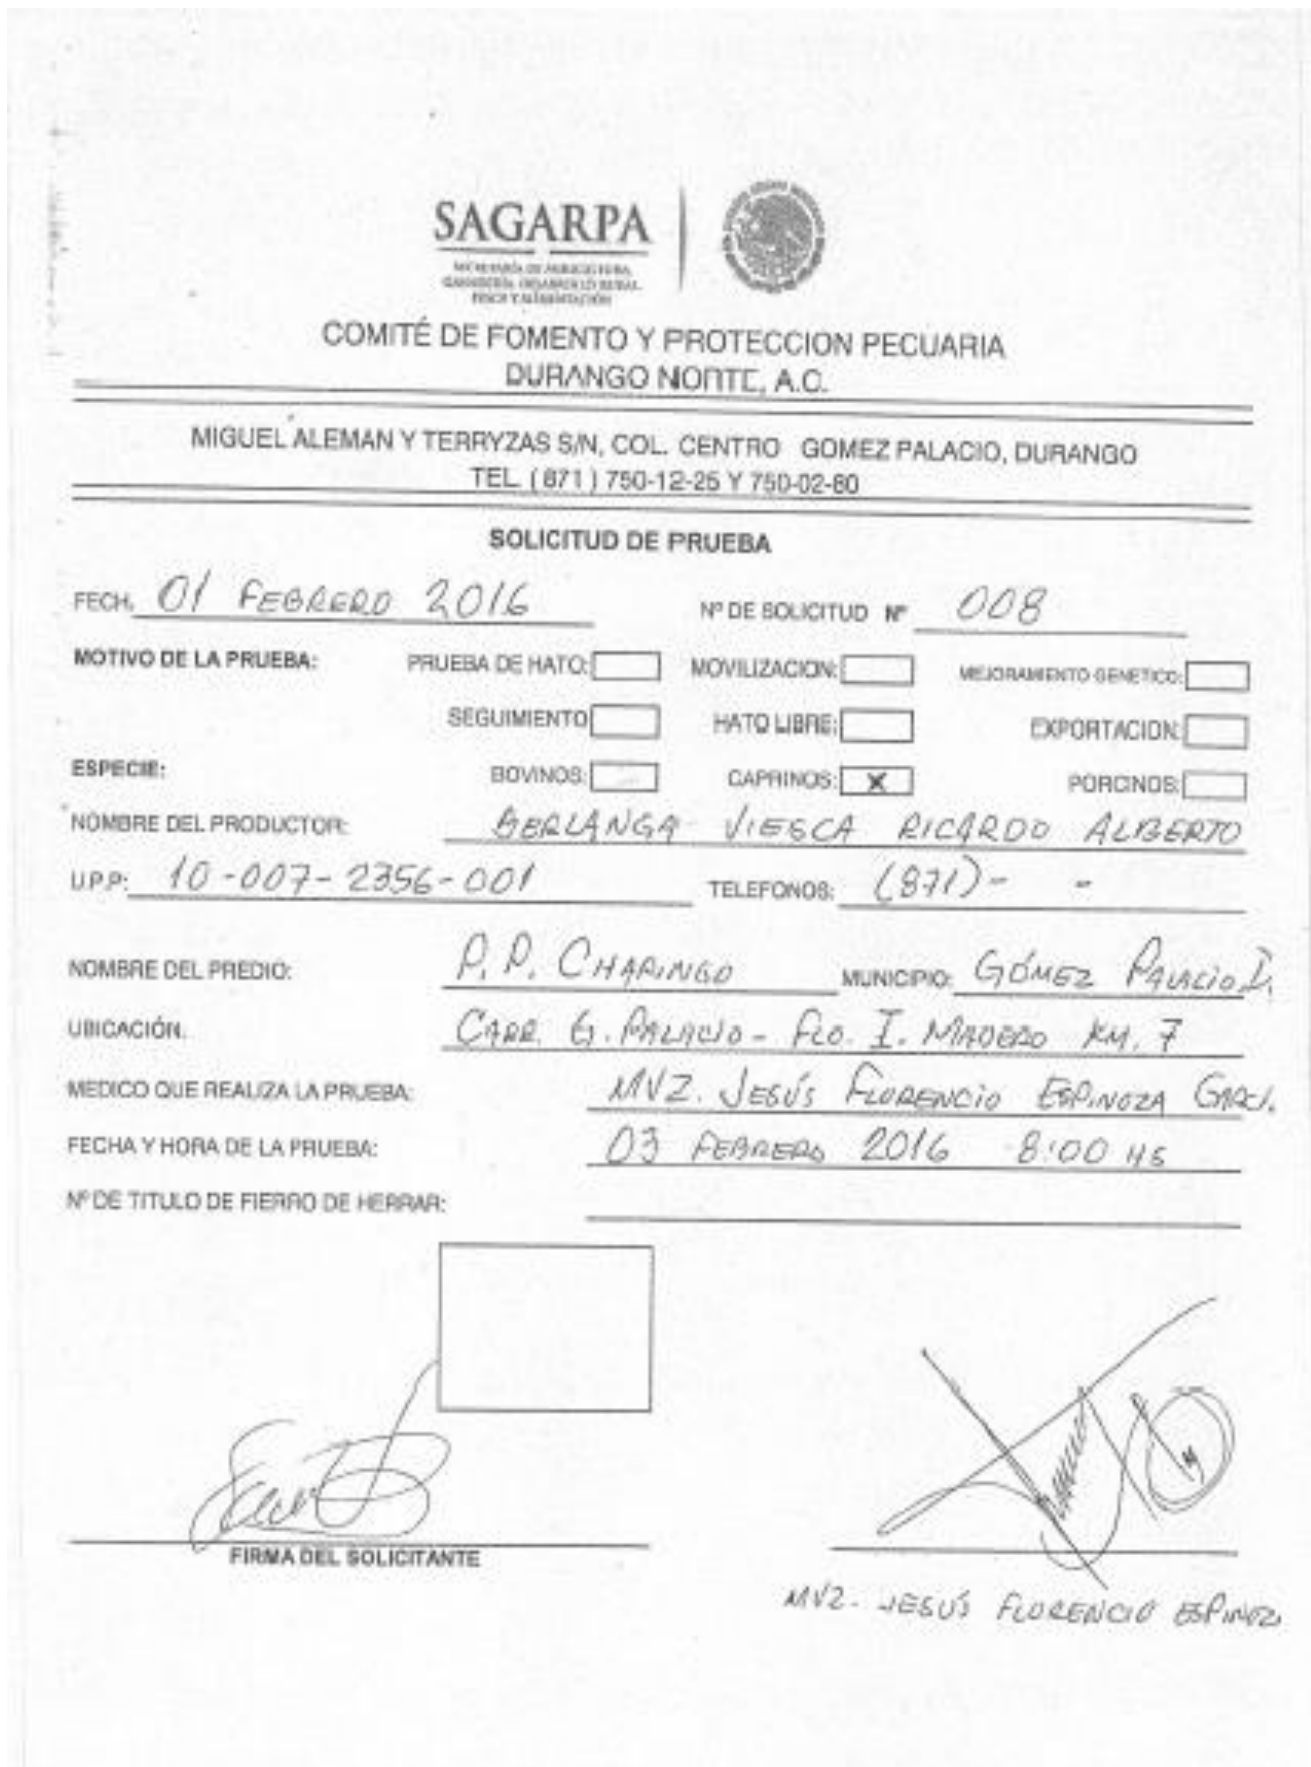 SAGARPA
SECRETARÍA DE AGRICULTURA,
GANADERÍA, DESARROLLO RURAL,
PESCA Y ALIMENTACIÓN
COMITÉ DE FOMENTO Y PROTECCION PECUARIA
DURANGO NORTE, A.C.
MIGUEL ALEMAN Y TERRYZAS S/N, COL. CENTRO GOMEZ PALACIO, DURANGO
TEL. (871) 750-12-25 Y 750-02-80
SOLICITUD DE PRUEBA
FECH. 01 FEBRERO 2016 Nº DE SOLICITUD Nº 008
MOTIVO DE LA PRUEBA: PRUEBA DE HATO: MOVILIZACION: MEJORAMIENTO GENETICO:
SEGUIMIENTO HATO LIBRE: EXPORTACION:
ESPECIE: BOVINOS: CAPRINOS: X PORCINOS:
NOMBRE DEL PRODUCTOR: BERLANGA VIESCA RICARDO ALBERTO
U.P.P: 10-007-2356-001 TELEFONOS: (871)- -
NOMBRE DEL PREDIO: P.P. CHARINGO MUNICIPIO: GÓMEZ PALACIO D.
UBICACIÓN. CARR. G. PALACIO - FCO. I. MADERO KM. 7
MEDICO QUE REALIZA LA PRUEBA: MVZ. JESÚS FLORENCIO ESPINOZA GARCI.
FECHA Y HORA DE LA PRUEBA: 03 FEBRERO 2016 8:00 HS
Nº DE TITULO DE FIERRO DE HERRAR:
FIRMA DEL SOLICITANTE
MVZ. JESÚS FLORENCIO ESPINOZ